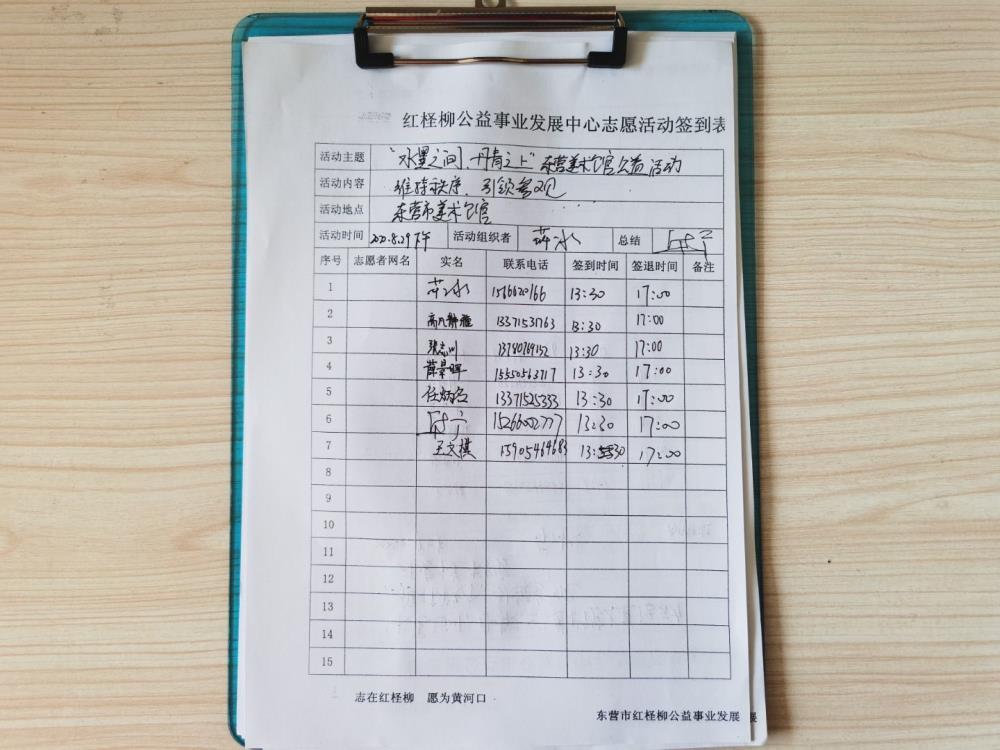 红柽柳公益事业发展中心志愿活动签到表
活动主题 "水墨之间、丹青之上"东营美术馆公益活动
活动内容 维持秩序、引领参观
活动地点 东营市美术馆
活动时间 2020.8.29下午 活动组织者 总结
序号 志愿者网名 实名 联系电话 签到时间 签退时间 备注
1 13:30 17:00
2 高凡静雅 13371531763 13:30 17:00
3 张志川 13780769152 13:30 17:00
4 薛景晖 15550563717 13:30 17:00
5 任炳名 13371525333 13:30 17:00
6 15266002777 13:30 17:00
7 王文棋 15905464683 13:30 17:00
8
9
10
11
12
13
14
15
志在红柽柳 愿为黄河口
东营市红柽柳公益事业发展